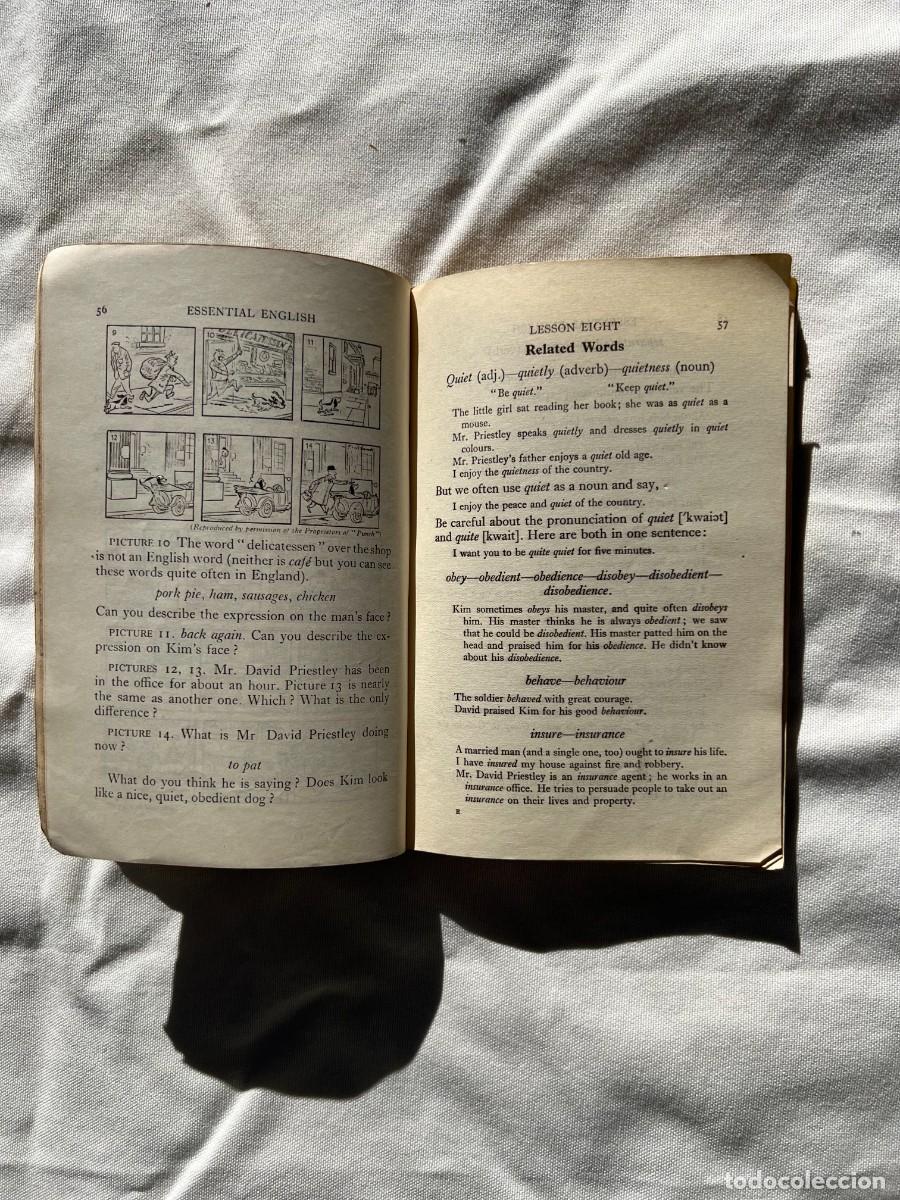 56 ESSENTIAL ENGLISH
9
10
11
DELICATESSEN
12
13
14
(Reproduced by permission of the Proprietors of "Punch")
PICTURE 10 The word "delicatessen" over the shop
is not an English word (neither is café but you can see
these words quite often in England).
pork pie, ham, sausages, chicken
Can you describe the expression on the man's face?
PICTURE 11. back again. Can you describe the ex-
pression on Kim's face?
PICTURES 12, 13. Mr. David Priestley has been
in the office for about an hour. Picture 13 is nearly
the same as another one. Which? What is the only
difference?
PICTURE 14. What is Mr David Priestley doing
now?
to pat
What do you think he is saying? Does Kim look
like a nice, quiet, obedient dog?
LESSON EIGHT 57
Related Words
Quiet (adj.)—quietly (adverb)—quietness (noun)
"Be quiet." "Keep quiet."
The little girl sat reading her book; she was as quiet as a
mouse.
Mr. Priestley speaks quietly and dresses quietly in quiet
colours.
Mr. Priestley's father enjoys a quiet old age.
I enjoy the quietness of the country.
But we often use quiet as a noun and say,
I enjoy the peace and quiet of the country.
Be careful about the pronunciation of quiet ['kwaiət]
and quite [kwait]. Here are both in one sentence:
I want you to be quite quiet for five minutes.
obey—obedient—obedience—disobey—disobedient—
disobedience.
Kim sometimes obeys his master, and quite often disobeys
him. His master thinks he is always obedient; we saw
that he could be disobedient. His master patted him on the
head and praised him for his obedience. He didn't know
about his disobedience.
behave—behaviour
The soldier behaved with great courage.
David praised Kim for his good behaviour.
insure—insurance
A married man (and a single one, too) ought to insure his life.
I have insured my house against fire and robbery.
Mr. David Priestley is an insurance agent; he works in an
insurance office. He tries to persuade people to take out an
insurance on their lives and property.
todocoleccion